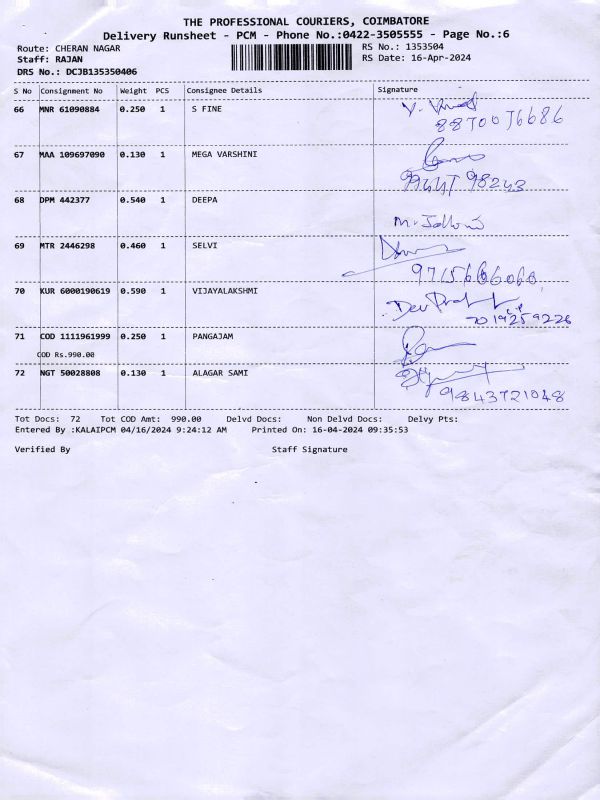 THE PROFESSIONAL COURIERS, COIMBATORE
Delivery Runsheet - PCM - Phone No.:0422-3505555 - Page No.:6
Route: CHERAN NAGAR RS No.: 1353504
Staff: RAJAN RS Date: 16-Apr-2024
DRS No.: DCJB135350406
S No Consignment No Weight PCS Consignee Details Signature
66 MNR 61090884 0.250 1 S FINE
67 MAA 109697090 0.130 1 MEGA VARSHINI
68 DPM 442377 0.540 1 DEEPA
69 MTR 2446298 0.460 1 SELVI
9715606060
70 KUR 6000190619 0.590 1 VIJAYALAKSHMI
71 COD 1111961999 0.250 1 PANGAJAM
COD Rs.990.00
72 NGT 50028808 0.130 1 ALAGAR SAMI
9843721048
Tot Docs: 72 Tot COD Amt: 990.00 Delvd Docs: Non Delvd Docs: Delvy Pts:
Entered By :KALAIPCM 04/16/2024 9:24:12 AM Printed On: 16-04-2024 09:35:53
Verified By Staff Signature